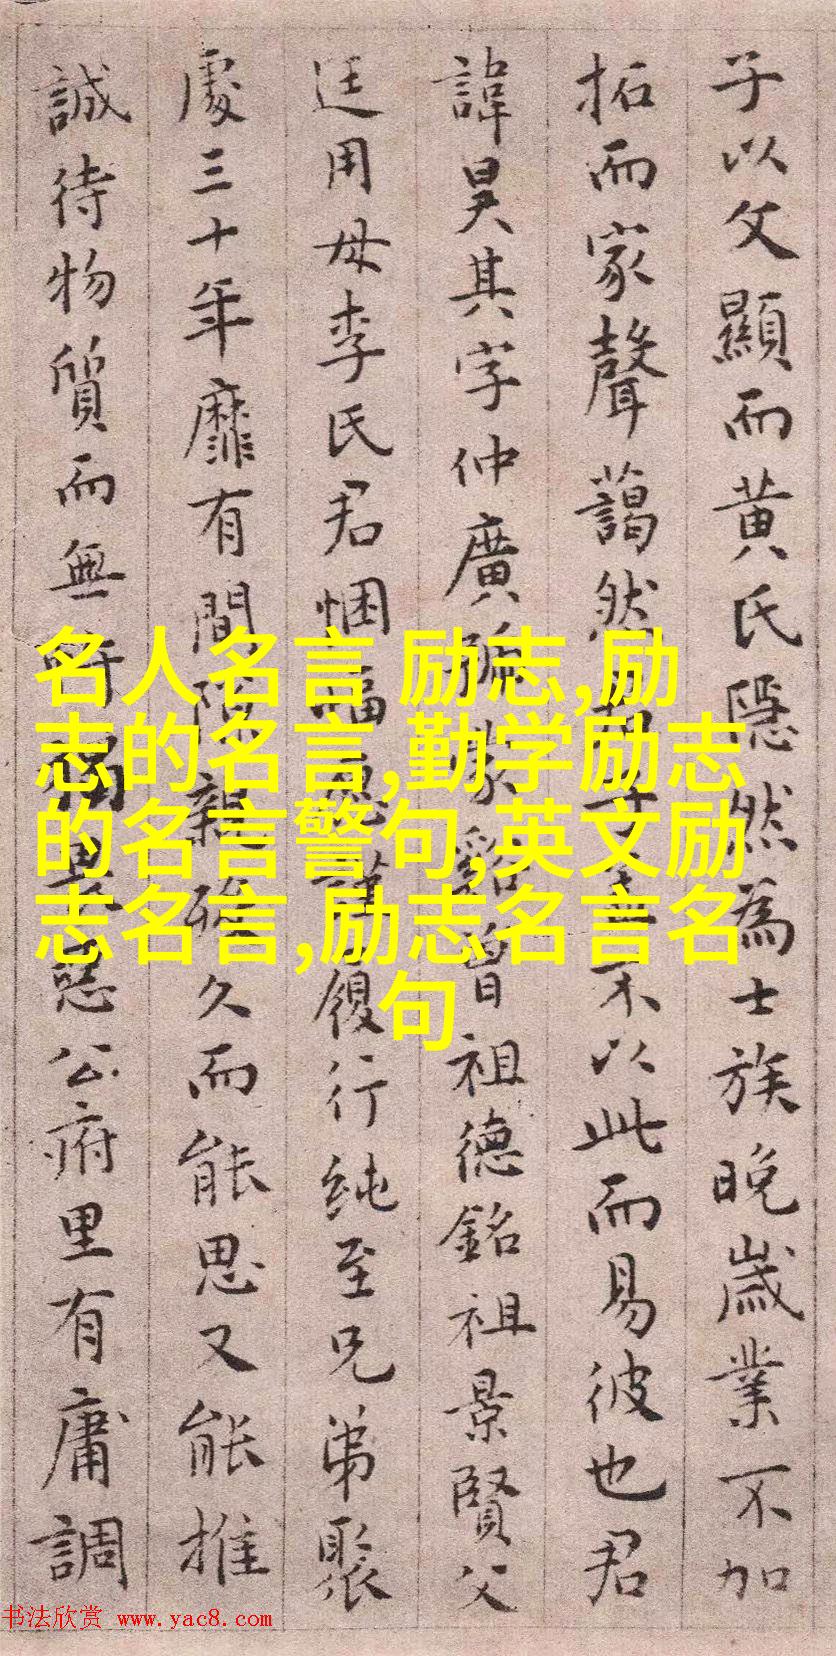 子以父顯而黄氏隱然為士族晚歲業不加
拓而家聲藹然不以此而易彼也君
諱昊其字仲廣谿曾祖德銘祖景賢父
廷用母李氏君悃愊謹履行純至兄弟聚
處三十年靡有間隙親久而能思又能推
誠待物質而無公府里有庸調
名人名言 励志,励
志的名言,勤学励志
的名言警句,英文励
志名言,励志名言名
句
书法欣赏 www.yac8.com